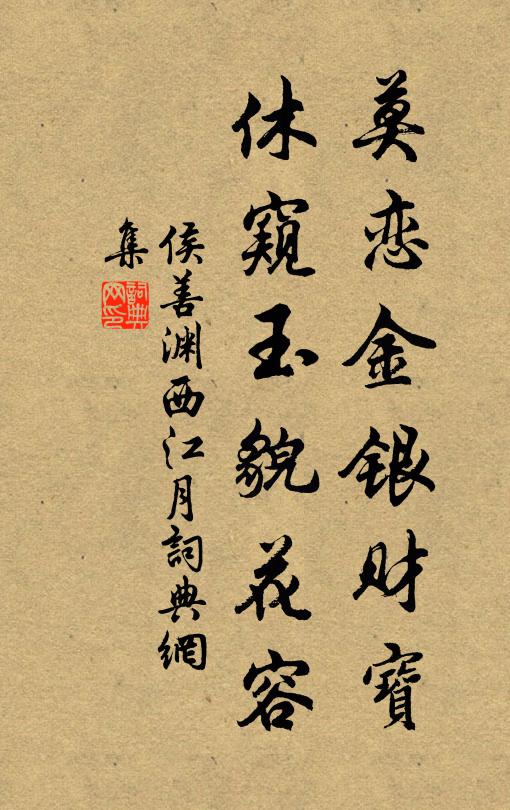 莫恋金银财寶
休窺玉貌花容
侯善渊西江月詞典網
集
詞典
网印